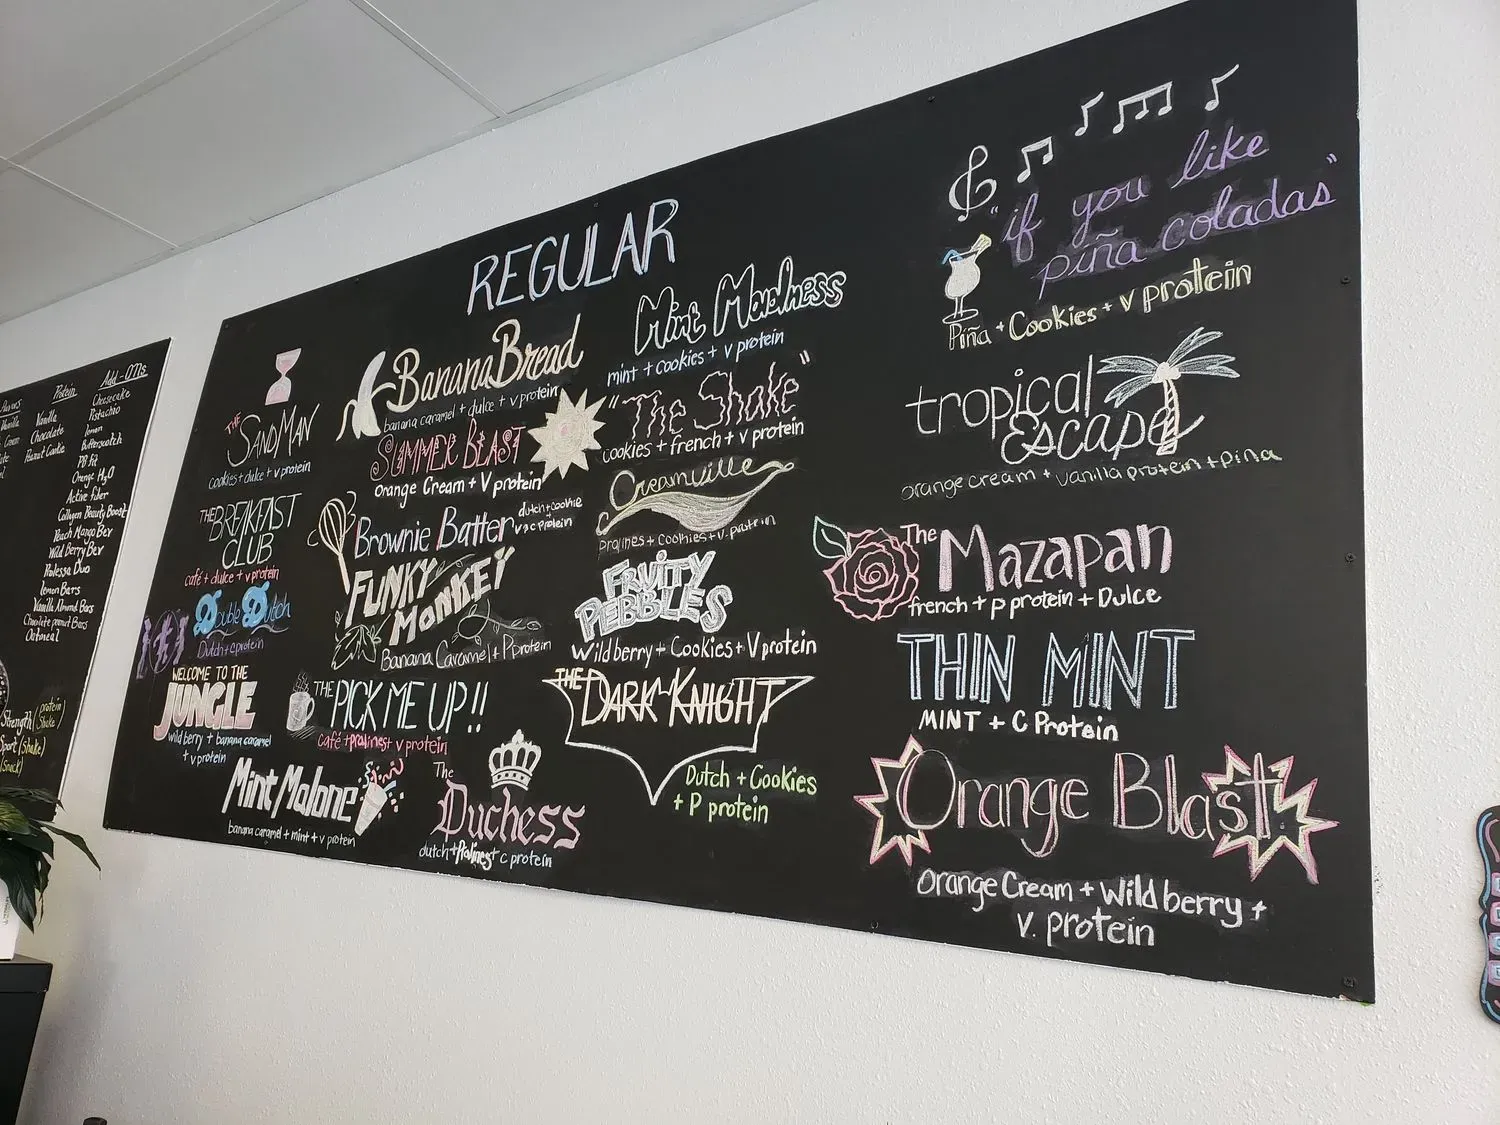 Protein
Vanilla
Chocolate
Peanut Cookie
Add-ONs
Cheesecake
Pistachio
lemon
Butterscotch
PB fit
Orange H2O
Active fiber
Collagen Beauty Boost
Peach Mango Bev
Wild Berry Bev
Prolessa Duo
Lemon Bars
Vanilla Almond Bars
Chocolate peanut Bars
Oatmeal
Strength (protein Shake)
Sport (Shake)
(Snack)
REGULAR
THE SANDMAN
cookies + dulce + v protein
THE BREAKFAST
CLUB
café + dulce + v protein
Double Dutch
Dutch + c protein
WELCOME TO THE
JUNGLE
wild berry + banana caramel
+ v protein
Mint Malone
banana caramel + mint + v protein
Banana Bread
banana caramel + dulce + v protein
SUMMER BLAST
orange Cream + V protein
Brownie Batter
dutch + cookie
v + c protein
FUNKY
MONKEY
Banana Caramel + P Protein
THE PICK ME UP!!
café + pralines + v protein
The
Duchess
dutch + Pralines + c protein
Mint Madness
mint + cookies + v protein
"The Shake"
cookies + french + v protein
Creamville
pralines + cookies + v. protein
FRUITY
PEBBLES
Wildberry + Cookies + V protein
THE DARK KNIGHT
Dutch + Cookies
+ P protein
"if you like
piña coladas"
Piña + Cookies + v protein
tropical
Escape
orange cream + vanilla protein + piña
The Mazapan
french + p protein + Dulce
THIN MINT
MINT + C Protein
Orange Blast
Orange Cream + Wild berry +
v. protein